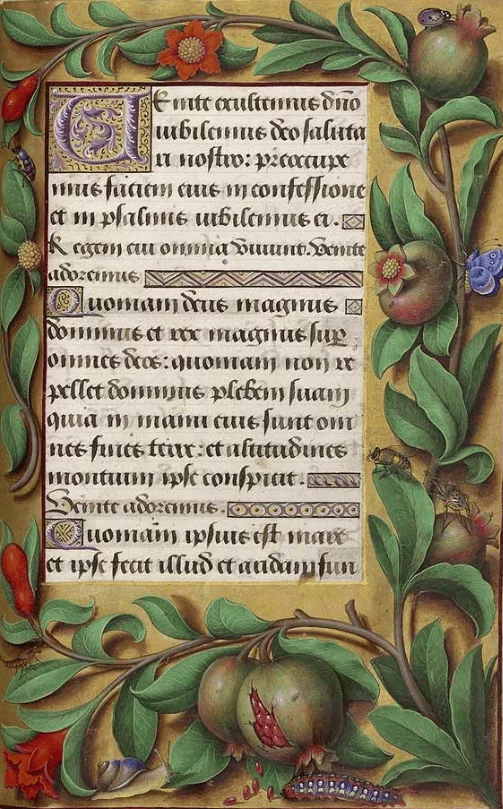 Venite exultemus dño
iubilemus deo saluta
ri nostro: preoccupe
mus faciem eius in confessione
et in psalmis iubilemus ei.
R egem cui omnia viuunt. Venite
adoremus
Quoniam deus magnus
dominus et rex magnus sup
omnes deos: quoniam non re
pellet dominus plebem suam
quia in manu eius sunt om
nes fines terre: et altitudines
montium ipse conspicit.
Venite adoremus.
Quoniam ipsius est mare
et ipse fecit illud et aridam fun